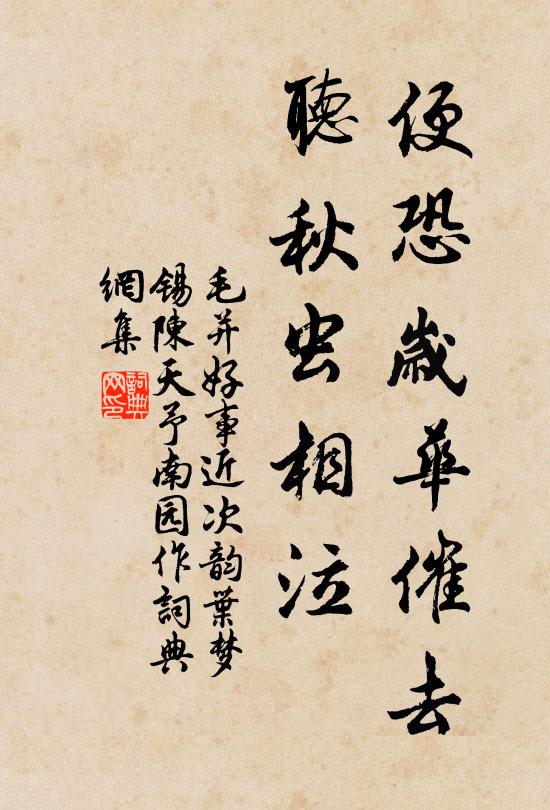 便恐歲華催去
聽秋虫相泣
毛并好事近次韵葉梦
锡陳天予南园作詞典
網集
詞典
网印